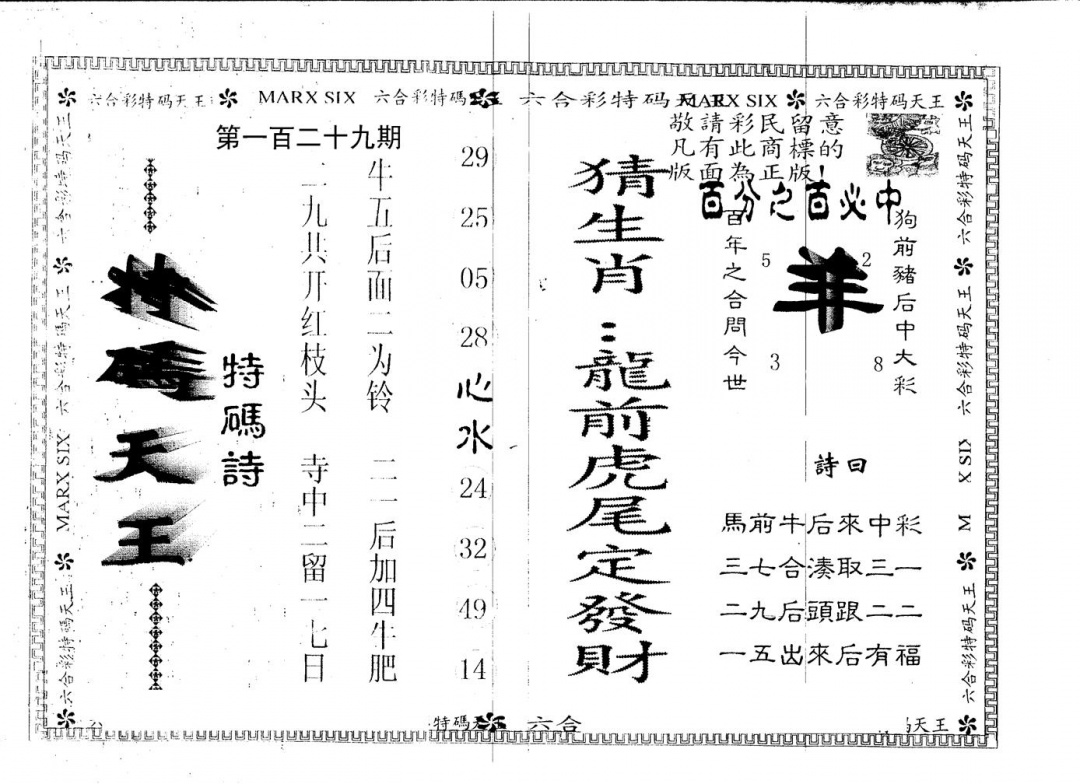 六合彩特码天王
MARX SIX
六合彩特碼
六合彩特码天
MARX SIX
六合彩特码天王
敬請彩民留意
凡有此商標的
版面為正版!
百分之百必中
狗前豬后中大彩
羊
5
2
3
8
百年之合問今世
詩曰
馬前牛后來中彩
三七合湊取三一
二九后頭跟二二
一五出來后有福
猜生肖:龍前虎尾定發財
29
25
05
28
心水
24
32
49
14
第一百二十九期
牛五后面二为铃
二一后加四牛肥
二九共开红枝头
寺中二留一七日
特碼詩
特碼天王
六合彩特码天王
六合彩特码天王
六合彩特码天王
MARX SIX
六合彩特码天王
六合彩特码天王
六合彩特码天王
六合彩特码天王
X SIX
M
六合彩特码天王
特碼天
六合
天王